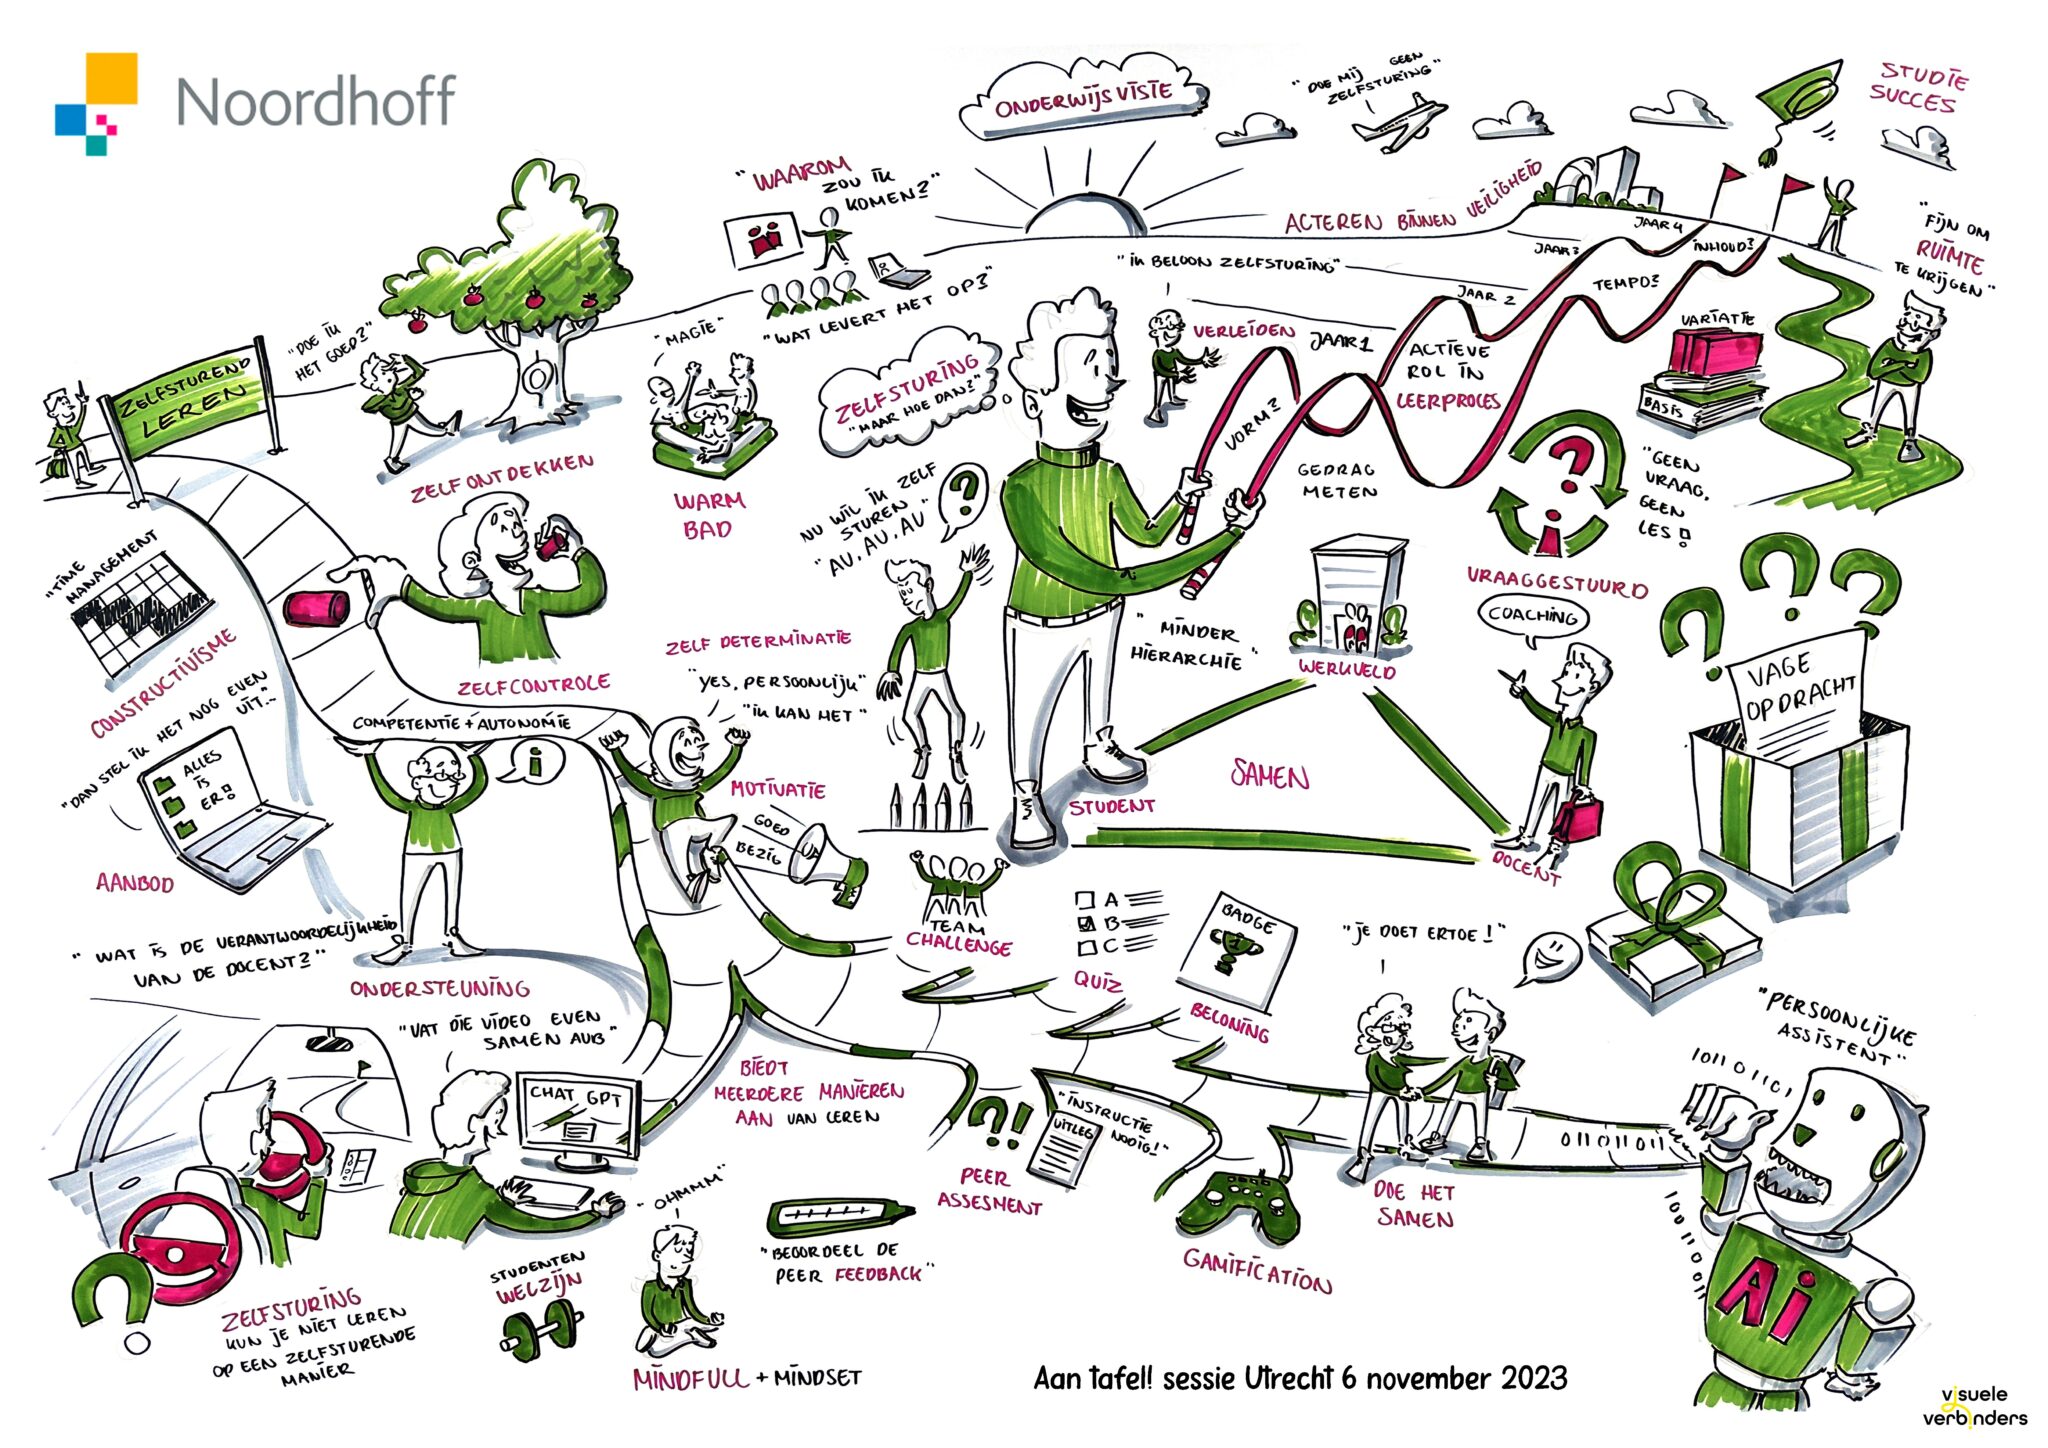 Noordhoff
ONDERWIJSVISIE
"DOE MIJ GEEN
ZELFSTURING"
STUDIE
SUCCES
"WAAROM
ZOU IK
KOMEN?"
"WAT LEVERT HET OP?"
ACTEREN BINNEN VEILIGHEID
"IK BELOON ZELFSTURING"
JAAR 1
JAAR 2
JAAR 3
JAAR 4
VORM?
TEMPO?
INHOUD?
"FIJN OM
RUIMTE
TE KRIJGEN"
ZELFSTUREND
LEREN
"DOE IK
HET GOED?"
ZELFONTDEKKEN
"MAGIE"
WARM
BAD
ZELFSTURING
"MAAR HOE DAN?"
VERLEIDEN
ACTIEVE
ROL IN
LEERPROCES
GEDRAG
METEN
VARIATIE
BASIS
"GEEN
VRAAG,
GEEN
LES!
VRAAGGESTUURD
"TIME
MANAGEMENT
CONSTRUCTIVISME
ZELFCONTROLE
NU WIL IK ZELF
STUREN"
"AU, AU, AU
?
ZELF DETERMINATIE
"YES, PERSOONLIJK"
"IK KAN HET"
"MINDER
HIERARCHIE"
WERKVELD
COACHING
VAGE
OPDRACHT
COMPETENTIE + AUTONOMIE
i
"DAN STEL IK HET NOG EVEN
UIT..
ALLES
IS
ER!
AANBOD
MOTIVATIE
GOED
BEZIG
STUDENT
SAMEN
DOCENT
TEAM
CHALLENGE
A
B
C
QUIZ
BADGE
1
BELONING
"JE DOET ERTOE!"
"WAT IS DE VERANTWOORDELIJKHEID
VAN DE DOCENT?"
ONDERSTEUNING
"VAT DIE VIDEO EVEN
SAMEN AUB"
CHAT GPT
BIEDT
MEERDERE MANIEREN
AAN VAN LEREN
?!
"INSTRUCTIE
NODIG!"
UITLEG
PEER
ASSESMENT
GAMIFICATION
DOE HET
SAMEN
"PERSOONLIJKE
ASSISTENT"
AI
ZELFSTURING
KUN JE NIET LEREN
OP EEN ZELFSTURENDE
MANIER
STUDENTEN
WELZIJN
"OHMMM"
MINDFULL + MINDSET
"BEOORDEEL DE
PEER FEEDBACK"
Aan tafel! sessie Utrecht 6 november 2023
visuele
verbinders